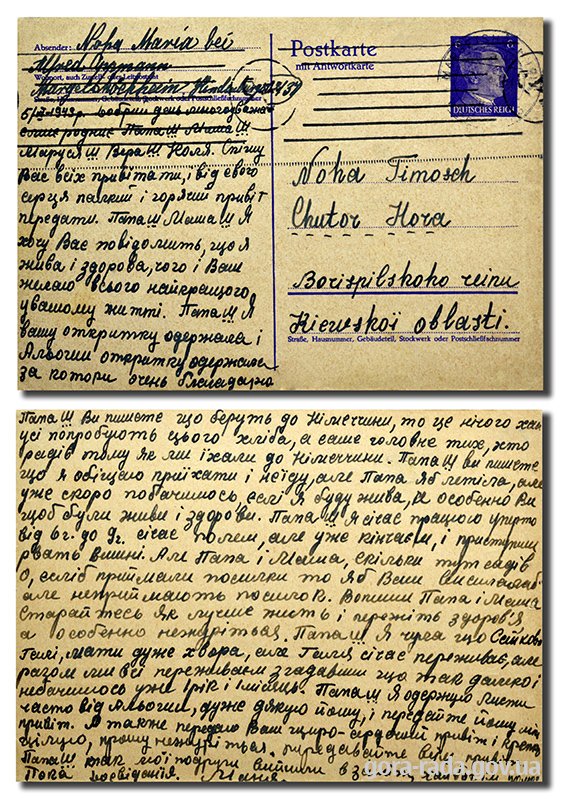 Absender: Noha Maria bei
Alfred
Wohnort, auch Zustell- oder Leitpostamt
Straße, Hausnummer, Gebäudeteil, Stockwerk oder Postschließfachnummer
Postkarte
mit Antwortkarte
DEUTSCHES REICH
5/ 1943р. Добрий день многоуважа
емие родние Папа!!! Мама!!!
Маруся!!! Вєра!!! Коля. Спішу
Вас всіх привітати, і від свого
серця палкий і горячий привіт
передати. Папа!!! Мама!!! Я
хочу Вас повідомить, що я
жива і здорова, чого і Вам
желаю всього найкращого
у вашому житті. Папа!!! Я
вашу откритку одержала і
Альошин откритку одержала
за котори очень благодарна
Noha Timosch
Chutor Hora
Borispilskoho reinu
Kiewskoї oblasti.
Straße, Hausnummer, Gebäudeteil, Stockwerk oder Postschließfachnummer
Папа!!! Ви пишете що беруть до Німеччини, то це нічого хай
усі попробують цього хліба, а саме головне тих, хто
радів тому як ми їхали до Німеччини. Папа!!! ви пишете
що я обіщаю приїхати і неїду, але Папа яб летіла, але
уже скоро побачимось, еслі я буду жива, и особенно Ви
щоб були живи і здорови. Папа!!! Я січас працюю упорто
від 6г. до 9г. січас полем, але уже кінчаєм, і приступим
рвать вишні. Але Папа і Мама, скільки тут садів
О, еслиб приймали посилки то яб Вам висилала б
але неприймають посилок. Вопщим Папа і Мама
старайтесь як лучше жисть і пережіть здоровя,
а особенно нежуріться. Папа!!! Я чула що Сайков
Галі, мати дуже хвора, але Галя січас переживає, але
разом ми всі переживаєм згадавши що так далеко і
небачимось уже 1рік і місяць. Папа!!! Я одержую листи
часто від Альоши, дуже дякую йому, і передайте йому мій
привіт. А также передаю Вам щиро-сердечний привіт і крепко
цілую, прошу нежуріться. передавайте всім
Папа!!! як мої подруги вийшли в
Пока досвідания. Маня.
gora-rada.gov.ua